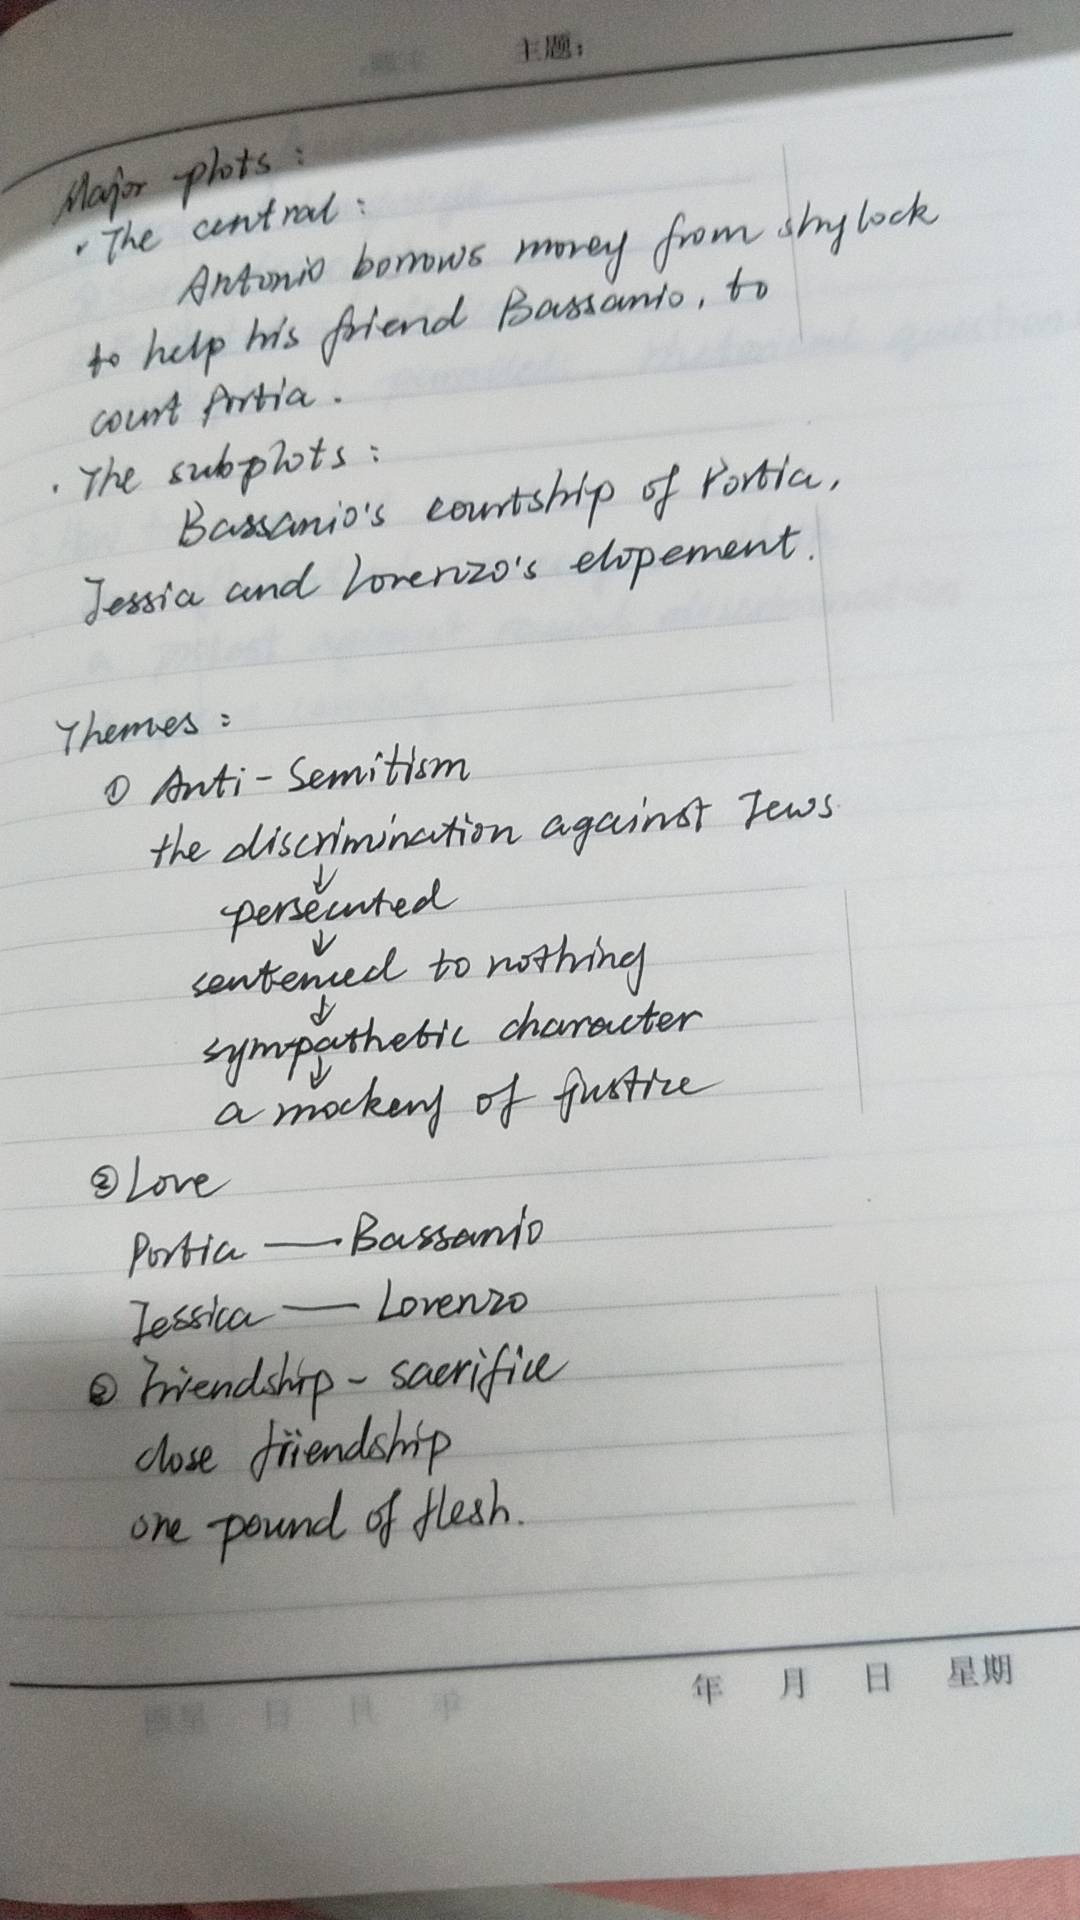 主题:
Major plots :
· The central :
Antonio borrows money from shylock
to help his friend Bassanio, to
court Portia .
· The subplots :
Bassanio's courtship of Portia,
Jessia and Lorenzo's elopement.
Themes :
① Anti-Semitism
the discrimination against Jews
↓
persecuted
↓
sentenced to nothing
↓
sympathetic character
↓
a mockery of justice
② Love
Portia — Bassanio
Jessica — Lorenzo
③ Friendship - sacrifice
close friendship
one pound of flesh.
年 月 日 星期